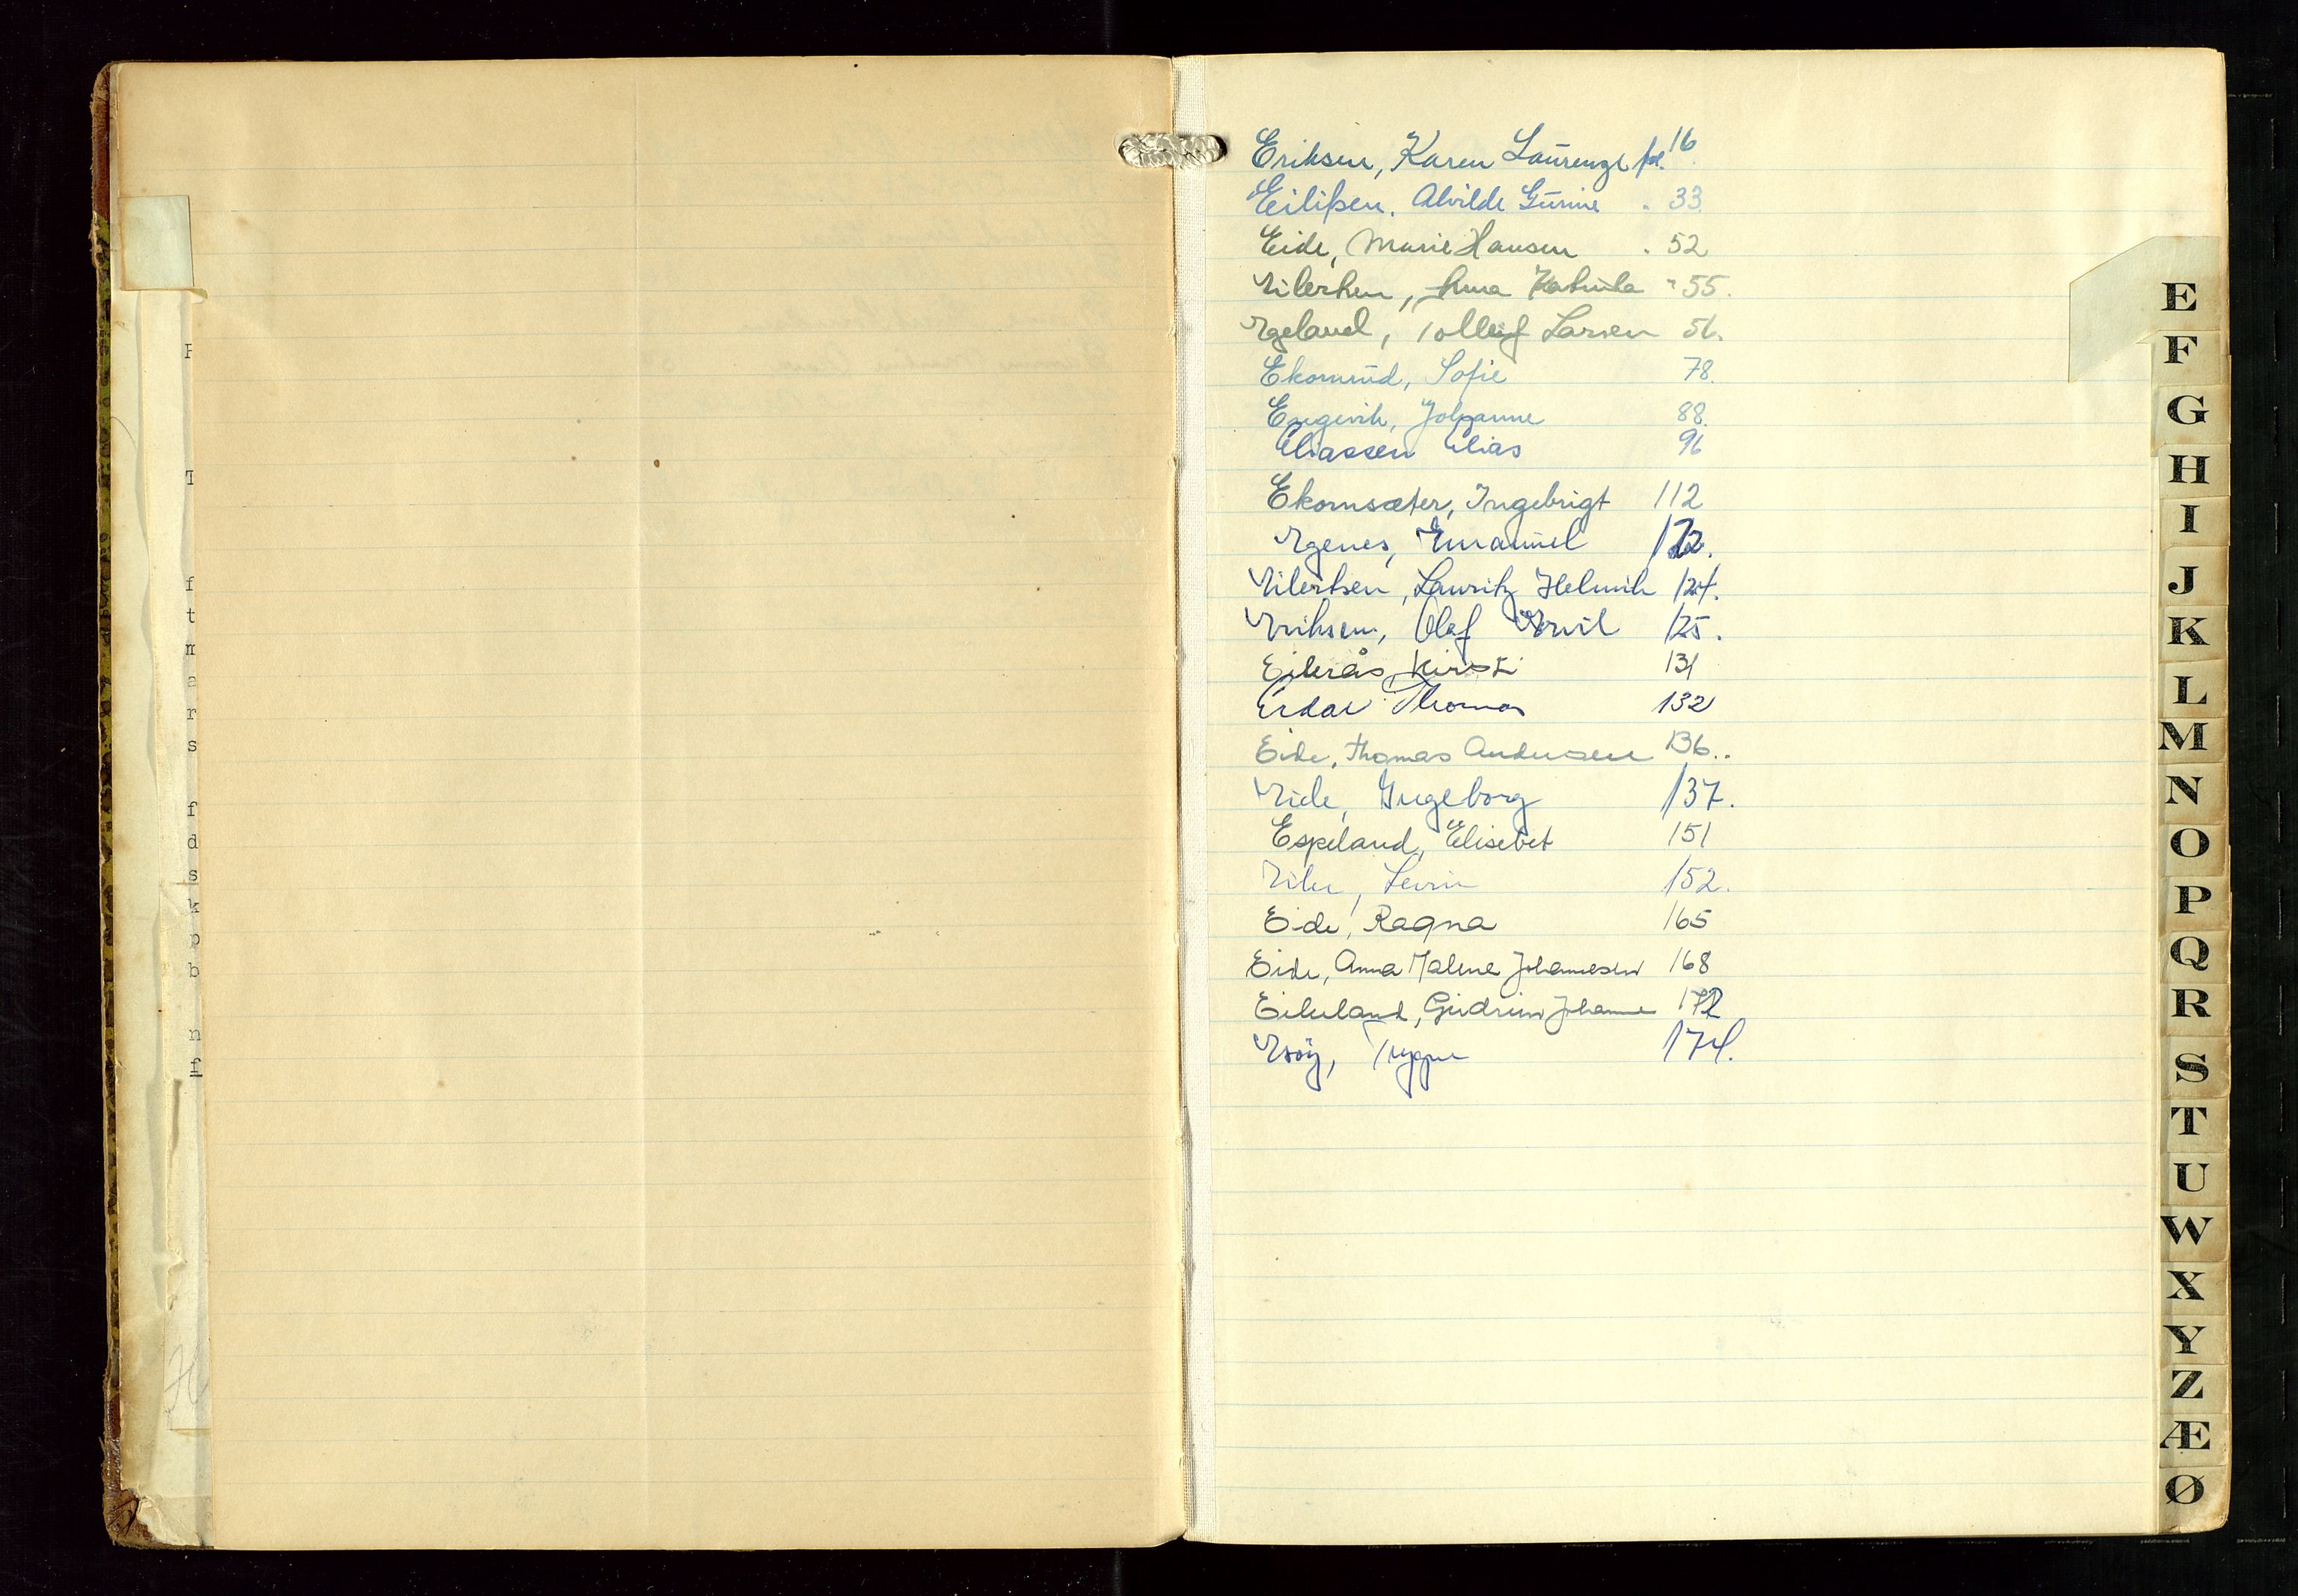 Eriksen, Karen Laurenze fol. 16
Eilifsen, Alvilde Gurine . 33.
Eide, Marie Hansen . 52
Eilertsen, Anna " 55.
Egeland, Tolleif Larsen 56.
Ekornrud, Sofie 78.
Engevik, Johanne 88.
Eliassen Elias 96
Ekornsæter, Ingebrigt 112
Egenes, Emanuel
Eilertsen, Lauritz Helmich 124.
Eriksen, Olaf Ervil 125.
Eikrås, Kirsti 131
Thomas 132
Eide, Thomas Andersen 136.
Eide, Ingeborg 137.
Espeland, Elisebet 151
Eike, Levin 152.
Eide, Ragna 165
Eide, Anna Malene Johannesen 168
Eikeland, Gudrun Johanne 172
Esøy, Trygve 174.
E
F
G
H
I
J
K
L
M
N
O
P
Q
R
S
T
U
W
X
Y
Z
Æ
Ø
f
t
m
a
r
s
f
d
s
k
p
b
n
f